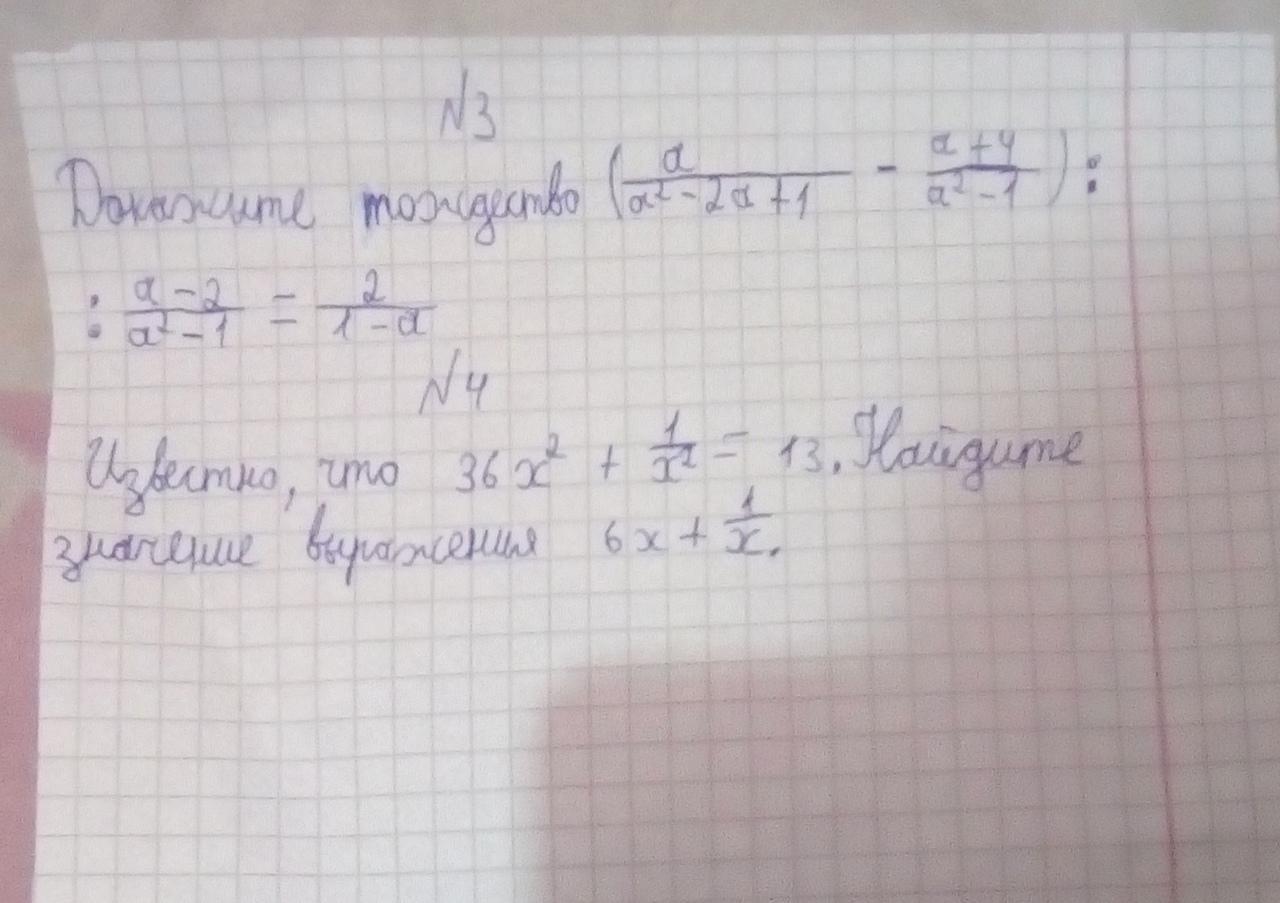 N3
Докажите тождество (a/(a²-2a+1) - (a+4)/(a²-1)) :
: (a-2)/(a²-1) = 2/(1-a)
N4
Известно, что 36x² + 1/x² = 13. Найдите
значение выражения 6x + 1/x.